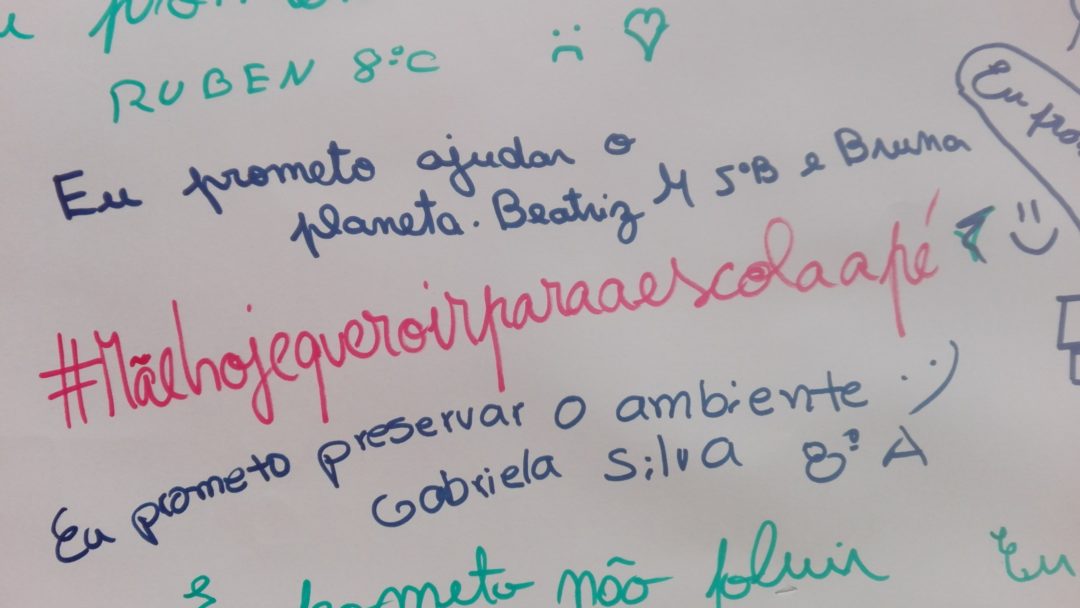 RUBEN 8ºC
Eu prometo ajudar o
planeta. Beatriz M 5ºB e Bruna
#Mãehojequeroirparaaescolaapé
Eu prometo preservar o ambiente :)
Gabriela Silva 8º A
prometo não poluir
Eu
Eu